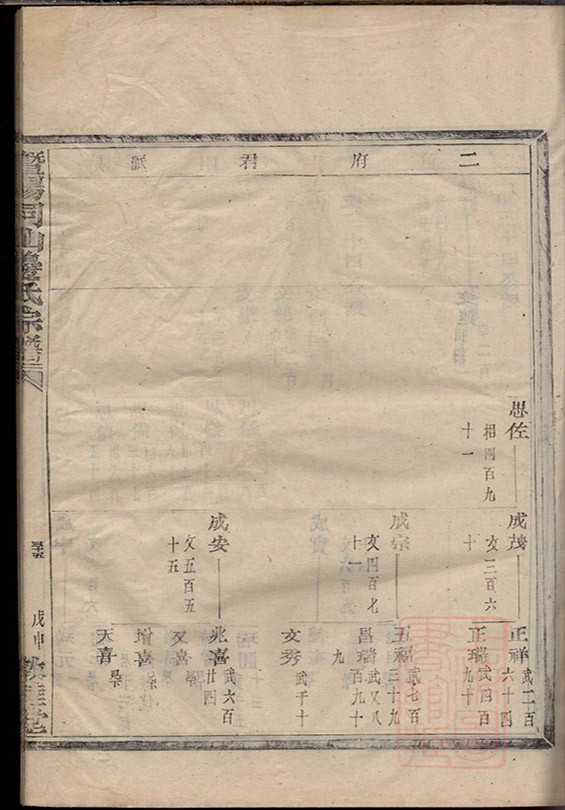 二府君派
思佐
相四百九
十一
成茂
文三百六
十
成宗
文四百七
十一
成安
文五百五
十五
正祥
武二百
六十四
正瑞
武四百
九十
五福
武七百
三十九
昌瑞
武又八
百九十
九
文秀
武千十
兆喜
武六百
廿四
又喜
增喜
天喜
暨陽同山邊氏宗譜
戊申
敦睦堂